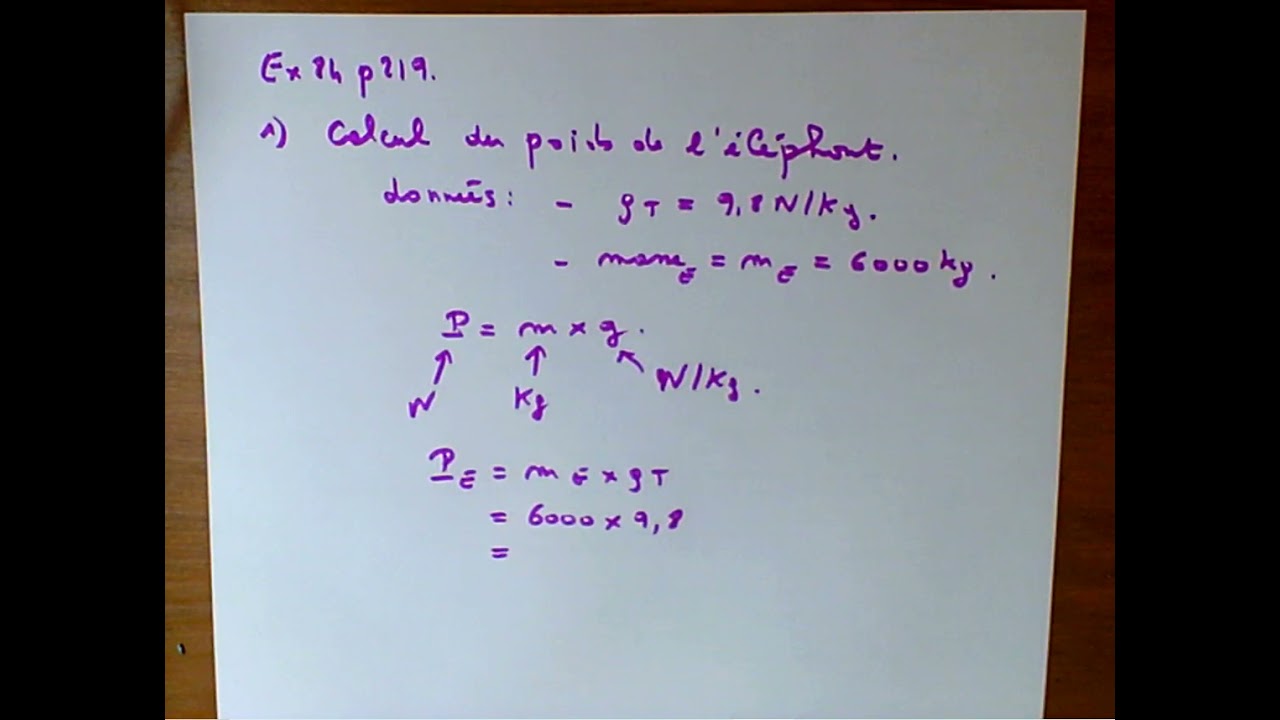 Ex 24 p219.
1) Calcul du poids de l'éléphant.
données : - gT = 9,8 N/kg.
- masseE = mE = 6000 kg.
P = m × g.
N Kg N/Kg.
PE = mE × gT
= 6000 × 9,8
=